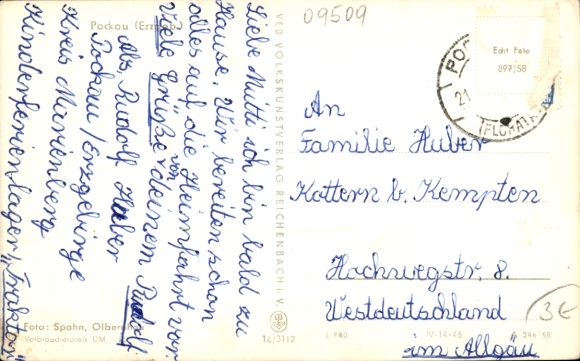 09509
Pockau (Erzgeb.)
Liebe Mutti ich bin bald zu
Hause. Wir bereiten schon
alles auf die Heimfahrt vor.
Viele Grüße von deinem Rudolf
Abs. Rudolf Huber
Pockau/Erzgebirge
Kreis Marienberg
Kinderferienlager „Traktor"
Foto: Spahn, Olbernhau
Verbraucherpreis DM
VEB VOLKSKUNSTVERLAG REICHENBACH I. V.
14/3112
Echt Foto
897/58
PO
21
(FLÖHATAL)
An
Familie Huber
Kottern b. Kempten
Hochwegstr. 8.
Westdeutschland
im Allgäu
IV-14-45
A 246/58
3€